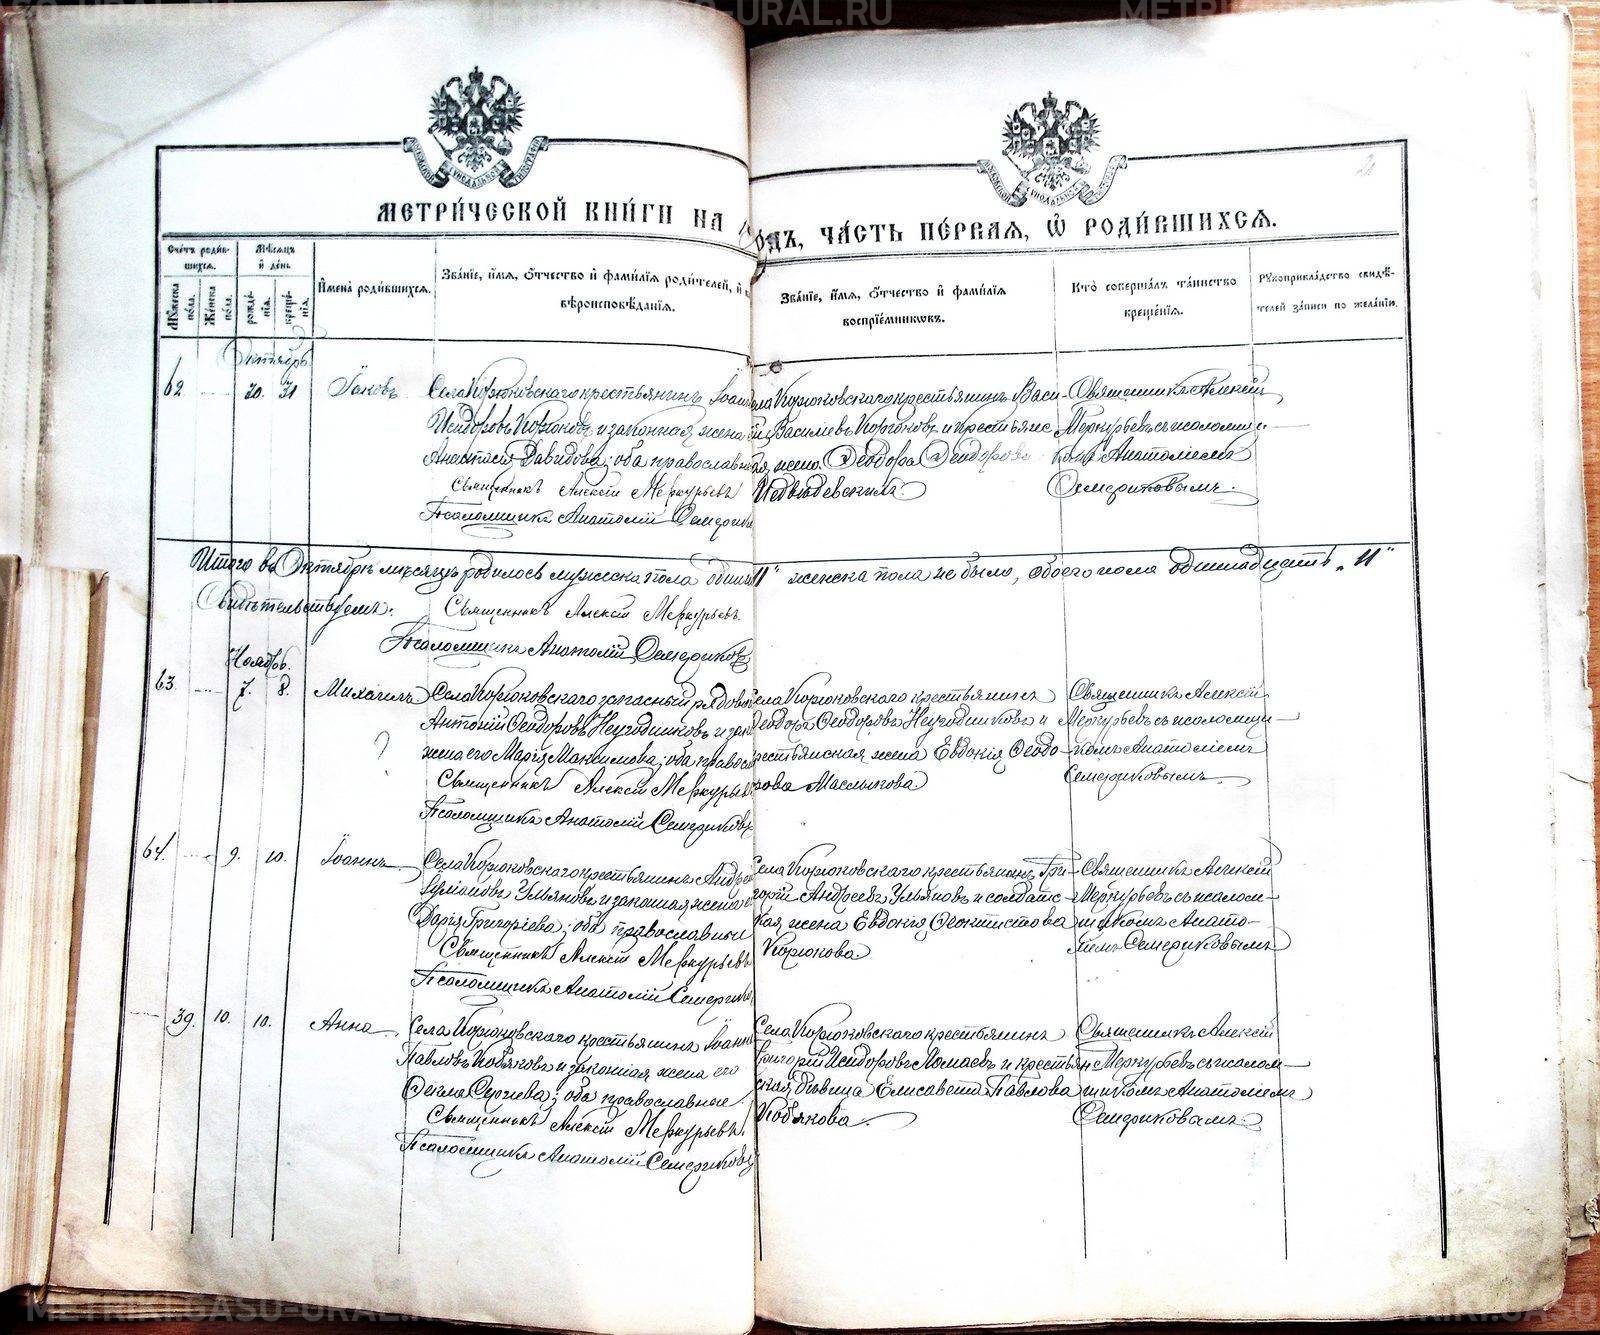 METRIKI.GASO-URAL.RU
МЕТРИ́ЧЕСКОЙ КНИ́ГИ НА
ГОДЪ, ЧА́СТЬ ПЕ́РВАЯ, Ѡ҆ РОДИ́ВШИХСѦ.
Сче́тъ роди́в-
шихсѧ.
Мѣ́сѧцъ
и҆ де́нь
Мꙋ́жеска по́ла.
Же́нска по́ла.
рожде́-
нїѧ.
креще́-
нїѧ.
И҆мена̀ роди́вшихсѧ.
Зва́нїе, и҆́мѧ, ѻ҆́тчество и҆ фами́лїѧ роди́телей, и҆
вѣроисповѣ́данїѧ.
Зва́нїе, и҆́мѧ, ѻ҆́тчество и҆ фами́лїѧ
воспрїе́мникѡвъ.
Кто̀ соверша́лъ та́инство
креще́нїѧ.
Рꙋкоприкла́дство свидѣ́-
телей за́писи по жела́нїю.
Октябрь
62 20. 31 Іаковъ
Села Корюковскаго крестьянинъ Іоан
Исидоровъ Корюковъ и законная жена
Анастасія Давидова; оба православн
Священникъ Алексій Меркурьевъ
Псаломщикъ Анатолій Семерико
Села Корюковскаго крестьянинъ Васи-
лій Васильевъ Корюковъ и крестьянс
кая жена Ѳеодора Ѳеодорова
Священникъ Алексій
Меркурьевъ съ псаломщи-
комъ Анатоліемъ
Семериковымъ.
Итого въ Октябрѣ мѣсяцѣ родилось мужеска пола один 11" женска пола не было, обоего пола одиннадцать „11"
Свидѣтельствуемъ:
Священникъ Алексій Меркурьевъ.
Псаломщикъ Анатолій Семериковъ
Ноябрь.
63. 7. 8. Михаилъ
Села Корюковскаго запасный рядовой
Антоній Ѳеодоровъ Неугодниковъ и зак
жена его Марія Максимова; оба правосл
Священникъ Алексій Меркурьев
Псаломщикъ Анатолій Семериковъ
Села Корюковскаго крестьянинъ
Ѳеодоръ Ѳеодоровъ Неугодниковъ и
крестьянская жена Евдокія Ѳеодо-
рова Маслыкова
Священникъ Алексій
Меркурьевъ съ псаломщи-
комъ Анатоліемъ
Семериковымъ.
64. 9. 10. Іоаннъ
Села Корюковскаго крестьянинъ Андрей
Ульяновъ и законная жена е
Дарія Григоріева; оба православныи
Священникъ Алексій Меркурьевъ
Псаломщикъ Анатолій Семерико
Села Корюковскаго крестьянинъ Гри-
горій Андреевъ Ульяновъ и солдатс-
кая жена Евдокія Ѳеоктистова
Корюкова.
Священникъ Алексій
Меркурьевъ съ псалом-
щикомъ Анато-
ліемъ Семериковымъ
39. 10. 10. Анна
Села Корюковскаго крестьянинъ Іоанн
Павловъ Кобяковъ и законная жена его
Ѳекла Сергіева; оба православные.
Священникъ Алексій Меркурьевъ.
Псаломщикъ Анатолій Семериковъ
Села Корюковскаго крестьянинъ
Григорій Исидоровъ Ломаевъ и крестьян
ская дѣвица Елисавета Павлова
Кобякова.
Священникъ Алексій
Меркурьевъ съ псалом-
щикомъ Анатоліемъ
Семериковымъ.
METRIKI.GASO-URAL.RU